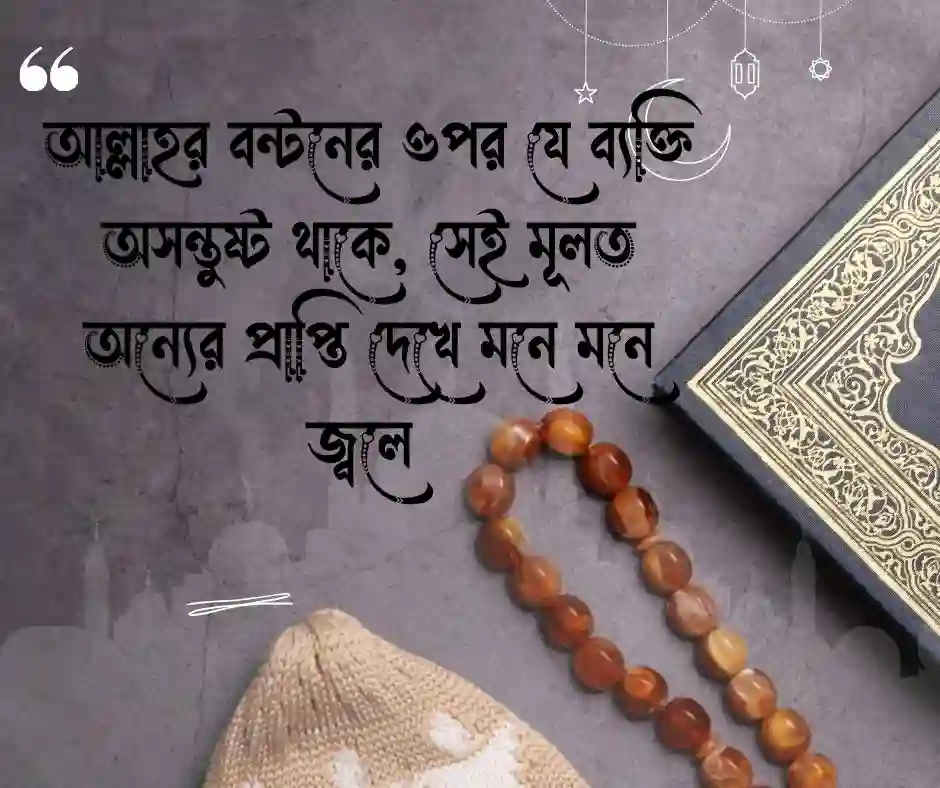 আল্লাহর বন্টনের ওপর যে ব্যক্তি
অসন্তুষ্ট থাকে, সেই মূলত
অন্যের প্রাপ্তি দেখে মনে মনে
জ্বলে